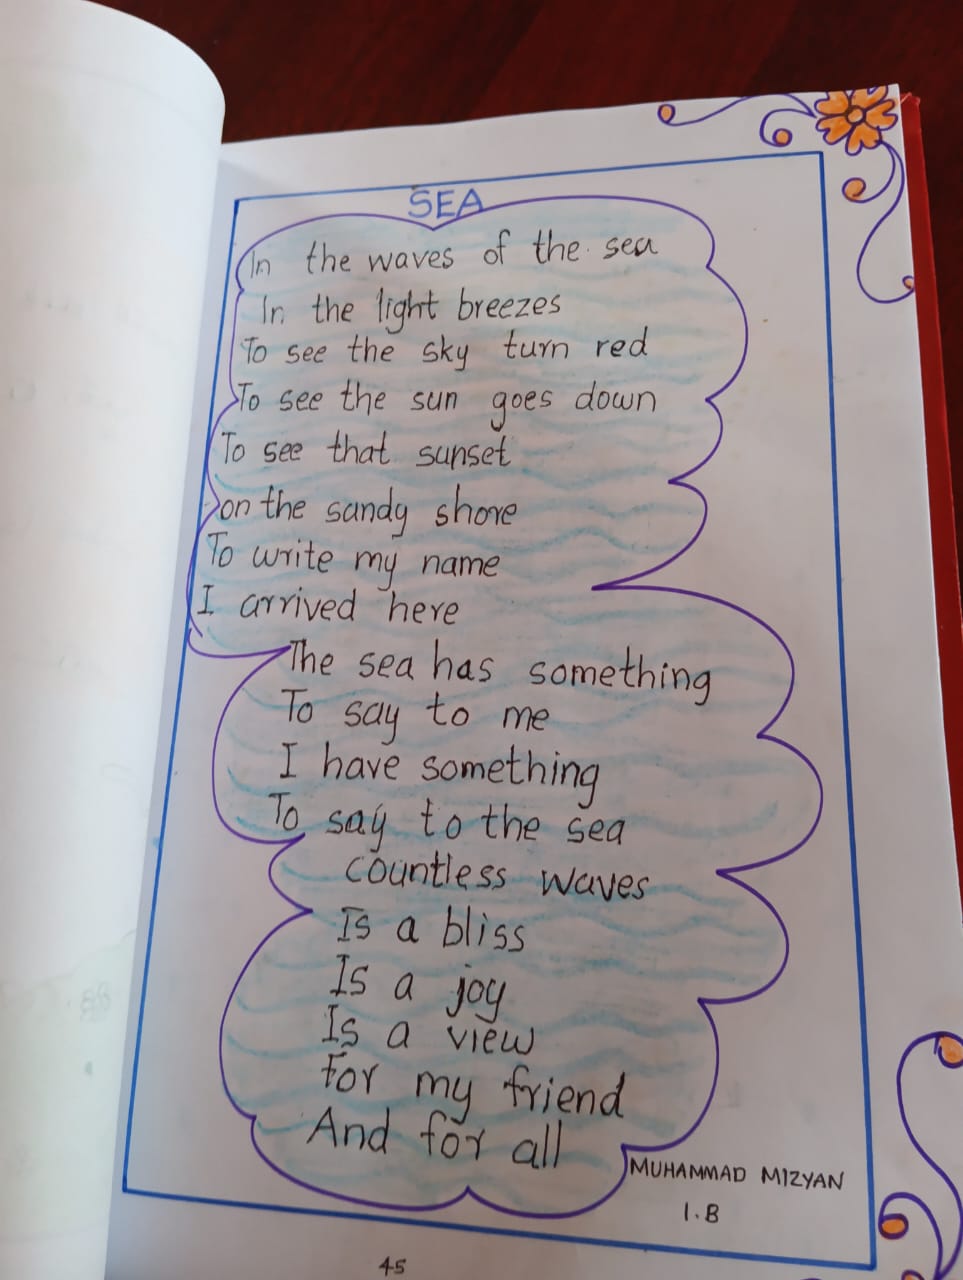 SEA
In the waves of the sea
In the light breezes
To see the sky turn red
To see the sun goes down
To see that sunset
on the sandy shore
To write my name
I arrived here
The sea has something
To say to me
I have something
To say to the sea
countless waves
Is a bliss
Is a joy
Is a view
For my friend
And for all
MUHAMMAD MIZYAN
1.B
45